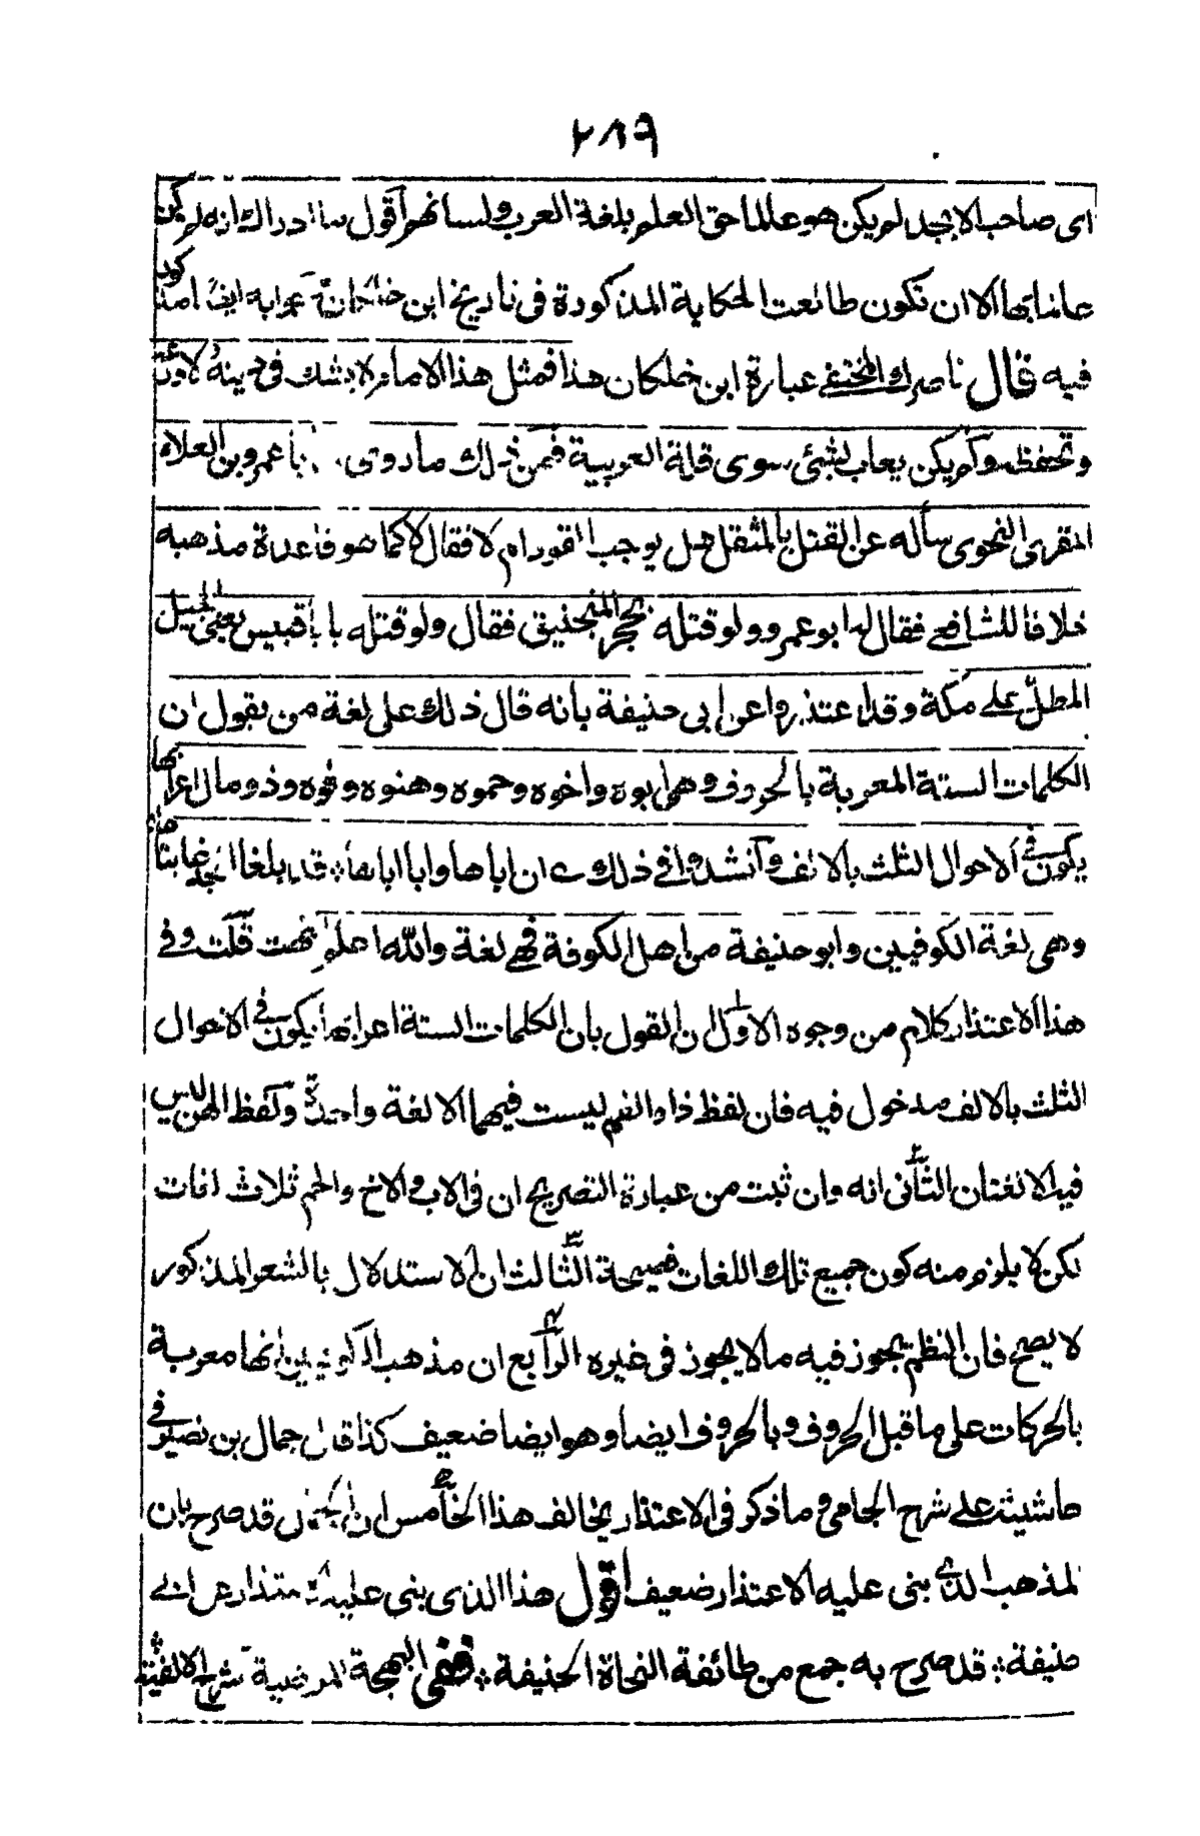 ٢٨٩
اى صاحب الابجد لم يكن هو عالما حق العلم بلغة العرب ولسانهم اقول ما ادراك انه لم يكن
عالما بها الا ان تكون طالعت الحكاية المذكورة فى تاريخ ابن خلكان
فيه قال ناصرك المختفى عبارة ابن خلكان هذا فمثل هذا الامام لا يشك فى دينه ولا ورعه
وتحفظه ولم يكن يعاب بشئ سوى قلة العربية فمن ذلك ما روى با عمرو بن العلاء
المقرى النحوى سأله عن القتل بالمثقل هل يوجب القود ام لا فقال لا كما هو قاعدة مذهبه
خلافا للشافعى فقال له ابو عمرو ولو قتله بحجر المنجنيق فقال ولو قتله بابا قبيس يعنى الجبل
المطل على مكة وقد اعتذروا عن ابى حنيفة بانه قال ذلك على لغة من يقول ان
الكلمات الستة المعربة بالحروف وهى ابوه واخوه وحموه وهنوه وفوه وذو مال اعرابها
يكون فى الاحوال الثلث بالالف وانشدوا فى ذلك ع ان اباها وابا اباها قد بلغا فى المجد غايتاها
وهى لغة الكوفيين وابو حنيفة من اهل الكوفة فهى لغة والله اعلم انتهت قلت وفى
هذا الاعتذار كلام من وجوه الاول ان القول بان الكلمات الستة اعرابها يكون فى الاحوال
الثلث بالالف مدخول فيه فان لفظ ذا والفم ليست فيهما الا لغة واحدة ولفظ الهن ليس
فيه الا لغتان الثانى انه وان ثبت من عبارة التصريح ان فى الاب والاخ والحم ثلاث لغات
لكن لا يلزم منه كون جميع تلك اللغات فصيحة الثالث ان الاستدلال بالشعر المذكور
لا يصح فان النظم يجوز فيه ما لا يجوز فى غيره الرابع ان مذهب الكوفيين انها معربة
بالحركات على ما قبل الحروف وبالحروف ايضا وهو ايضا ضعيف كذا قال جمال بن نصير فى
حاشيته على شرح الجامى وما ذكر فى الاعتذار يخالف هذا الخامس ان قد صرح بان
المذهب الذى بنى عليه الاعتذار ضعيف اقول هذا الذى بنى عليه الاعتذار عن ابى
حنيفة قد صرح به جمع من طائفة النحاة الحنيفة ففى البهجة المرضية شرح الالفية